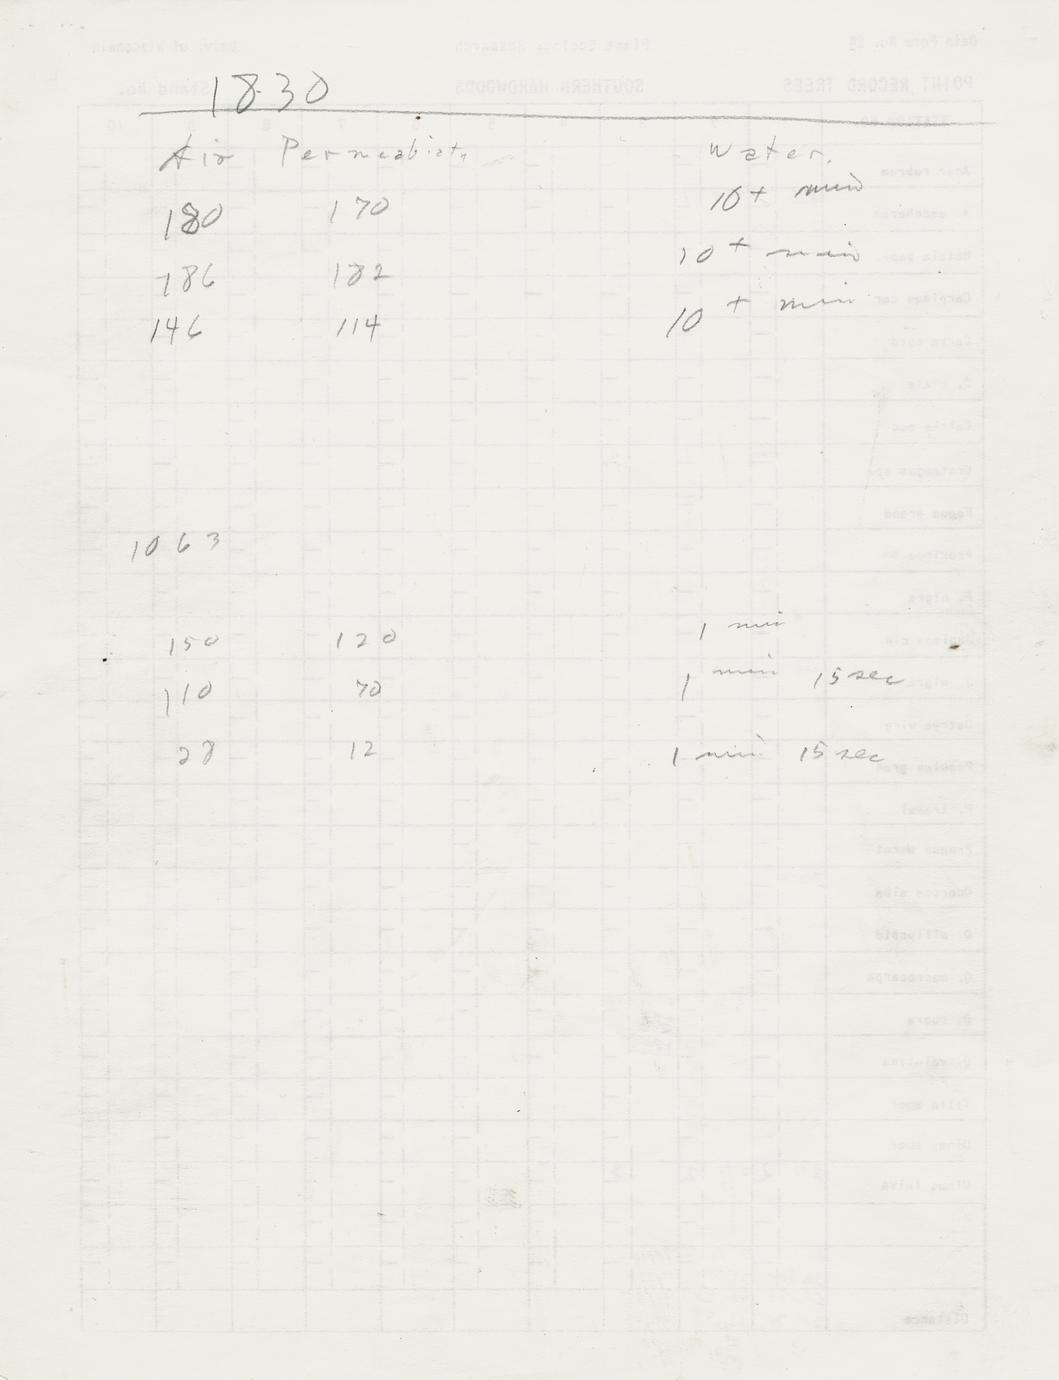 1830
Air Permeability Water.
180 170 10+ min
186 182 10+ min
146 114 10+ min
1063
150 120 1 min
110 70 1 min 15 sec
28 12 1 min 15 sec